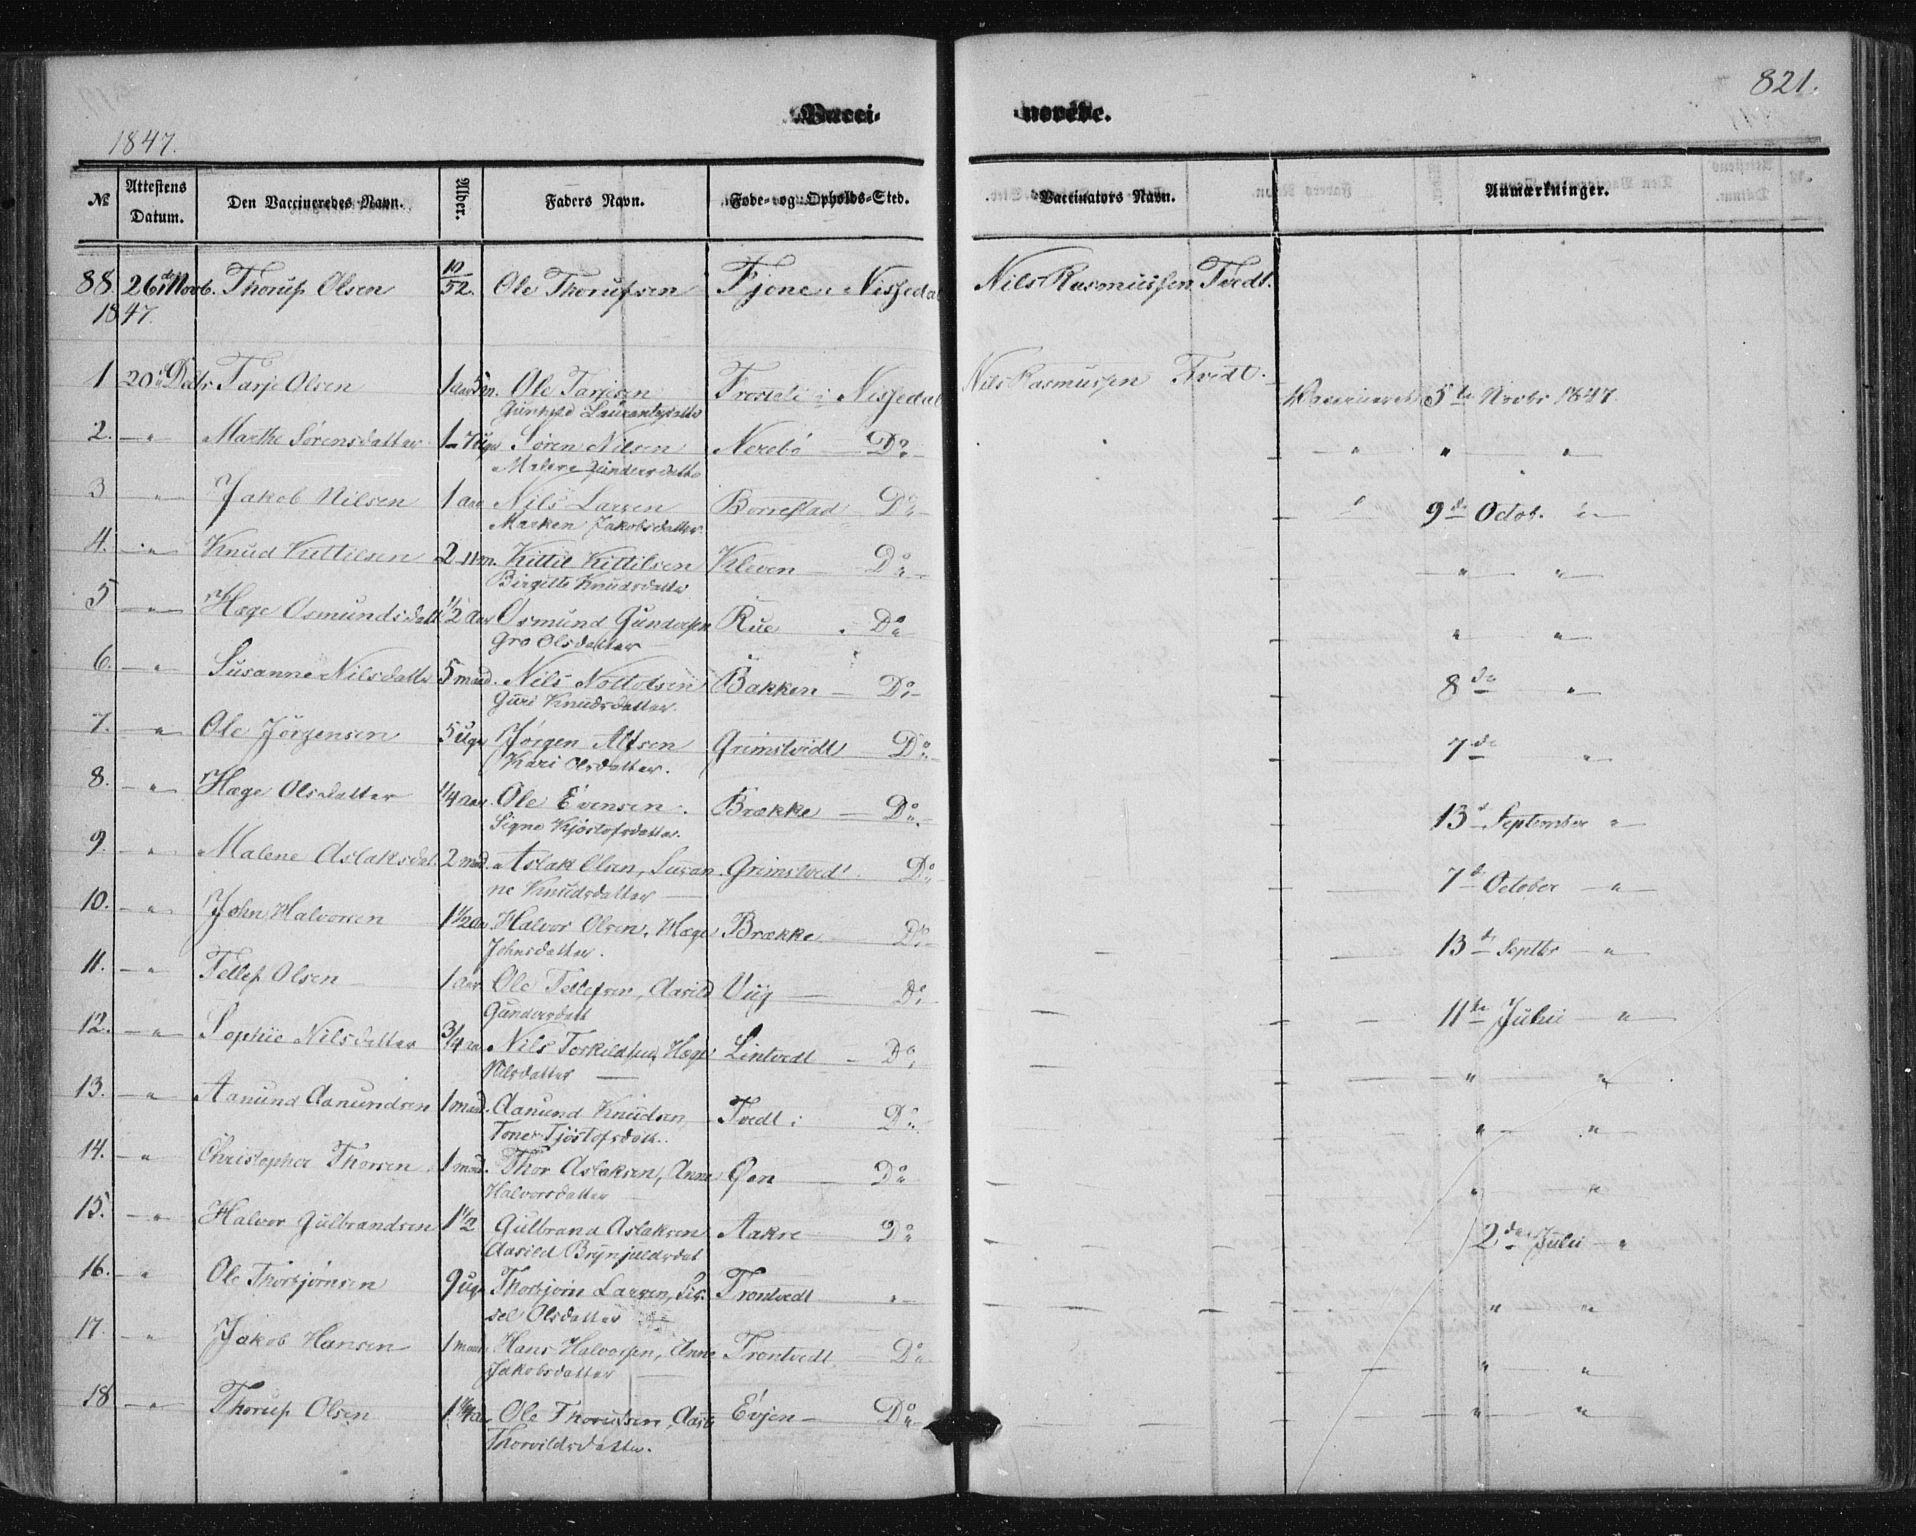 821.
Vacci- nerede.
1847.
№ Attestens Datum. Den Vaccineredes Navn. Alder. Faders Navn. Føde- og Opholds-Sted. Vaccinators Navn. Anmærkninger.
88. 26de Novb. Thorup Olsen 10/52. Ole Thorupsen Fjone i Nissedal Nils Rasmussen Tvedt.
1847.
1 20de Decbr Tarje Olsen 1 aar 5 m. Ole Tarjesen Frosteli i Nissedal Nils Rasmussen Tvedt. Vaccineret 5te Novbr 1847
Gunhild
2. — " — Marthe Sørensdatter 1 — 7 Uger Søren Nilsen Nerebø — Do — " " "
Malene Gundersdatter
3 — " — Jakob Nilsen 1 aar Nils Larsen Borrestad — Do — 9de Octob. "
Marken Jakobsdatter
4. — " — Knud Kittilsen 2 — m. Kittil Kittilsen Kleven — Do — " "
Birgitte Knudsdatter
5 — " — Hæge Osmundsdatt 1/2 Aar Osmund Gundersen Rue Do — " "
Gro Olsdatter
6. — " — Susanne Nilsdatter 5 maad. Nils Nottolsen Bakken — Do — 8de — "
Guri Knudsdatter.
7. — " — Ole Jørgensen 5 Uger Jørgen Alfsen Grimstvedt Do — 7de — "
Kari Olsdatter.
8. — " — Hæge Olsdatter 1/4 aar. Ole Evensen. Brække — Do. 13d September "
Signe Kjøstofsdatter.
9. — " — Malene Aslaksdat. 2 maad. Aslak Olsen, Susan- Grimstvedt. Do — 7d October — "
ne Knudsdatter —
10. — " — John Halvorsen 1 1/2 aar Halvor Olsen, Hæge Brække Do — 13d Septbr — "
Johnsdatter.
11. — " — Tellef Olsen 1 aar. Ole Tellefsen, Aasild Viig — Do — 11te Julii — "
Gundersdatt
12. — " — Sophie Nilsdatter 3/4 aar Nils Torkildsen, Hæge Lintvedt — Do — " "
Nilsdatter —
13. — " — Aanund Aanundsen 1 maad. Aanund Knudsen Tvedt i Do — " "
Tone Tjøstofsdatt.
14. — " — Christopher Thorsen 1 maad. Thor Aslaksen, Anne Øen — Do " "
Halvorsdatter —
15. — " — Halvor Gulbrandsen 1 1/2 Gulbrand Aslaksen Aakre Do 2den Julii — "
Aasild Brynjuldsdat
16. — " Ole Thorbjørnsen 9 uger Thorbjørn Larsen, Sis- Trontvedt " — " "
sel Olsdatter
17. — " — Jakob Hansen 1 maan. Hans Halvorsen, Anne Trontvedt — Do — " "
Jakobsdatter —
18 — " — Thorup Olsen 1 1/4 aar Ole Thorupsen, Aaste Evjen — Do — " "
Thorvildsdatter.